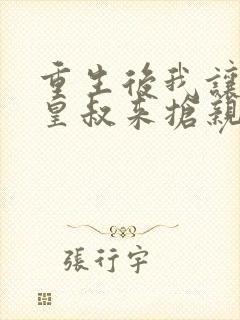 重生後我讓
皇叔來搶親
張行宇